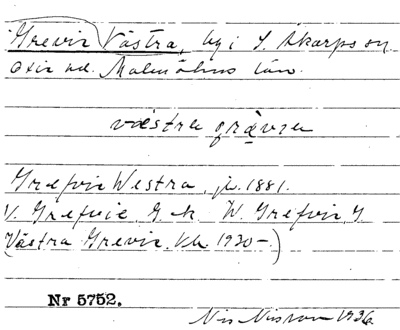 Grevie Västra, by i S. Åkarps sn
Oxie hd. Malmöhus län.
væstra grävıa
Græfvie Westra, jb. 1881.
V. Grefvie G. k. W. Grefvie
(Västra Grevie, kk 1930–.)
Nr 5752.
Nils Nilsson 1936